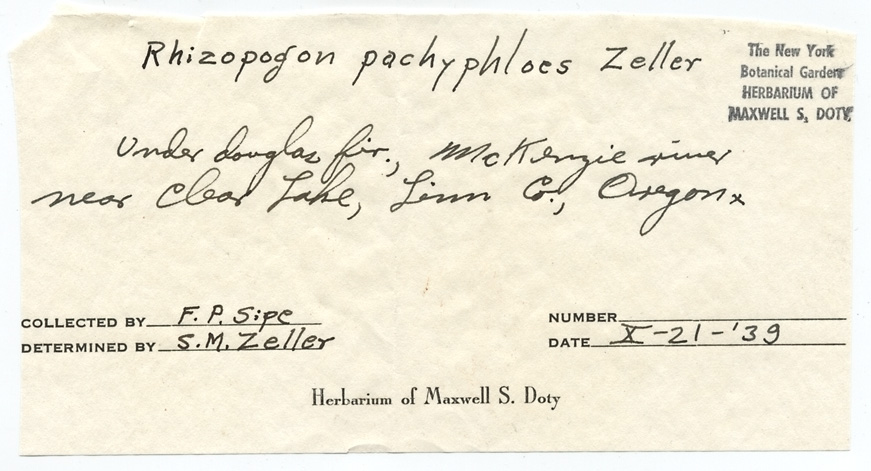 Rhizopogon pachyphloes Zeller
The New York
Botanical Garden
HERBARIUM OF
MAXWELL S. DOTY
Under douglas fir., McKenzie river
near Clear Lake, Linn Co., Oregon.
COLLECTED BY F. P. Sipe
DETERMINED BY S. M. Zeller
NUMBER
DATE X-21-'39
Herbarium of Maxwell S. Doty